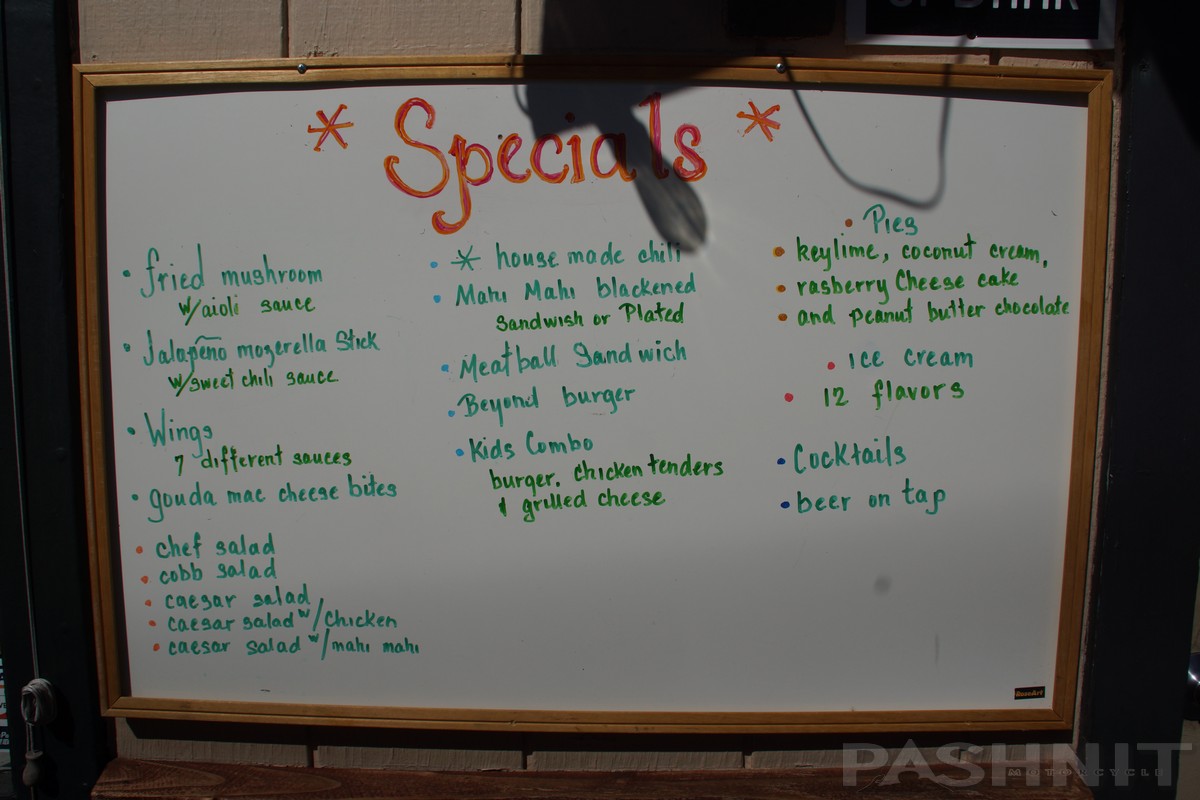 * Specials *
• fried mushroom
w/aioli sauce
• Jalapeño mozerella Stick
w/sweet chili sauce
• Wings
7 different sauces
• gouda mac cheese bites
• chef salad
• cobb salad
• caesar salad
• caesar salad w/chicken
• caesar salad w/mahi mahi
• * house made chili
• Mahi Mahi blackened
Sandwish or Plated
• Meatball Sandwich
• Beyond burger
• Kids Combo
burger, chicken tenders
& grilled cheese
• Pies
• keylime, coconut cream,
• rasberry Cheese cake
• and peanut butter chocolate
• Ice cream
• 12 flavors
• Cocktails
• beer on tap
PASHNIT
MOTORCYCLE